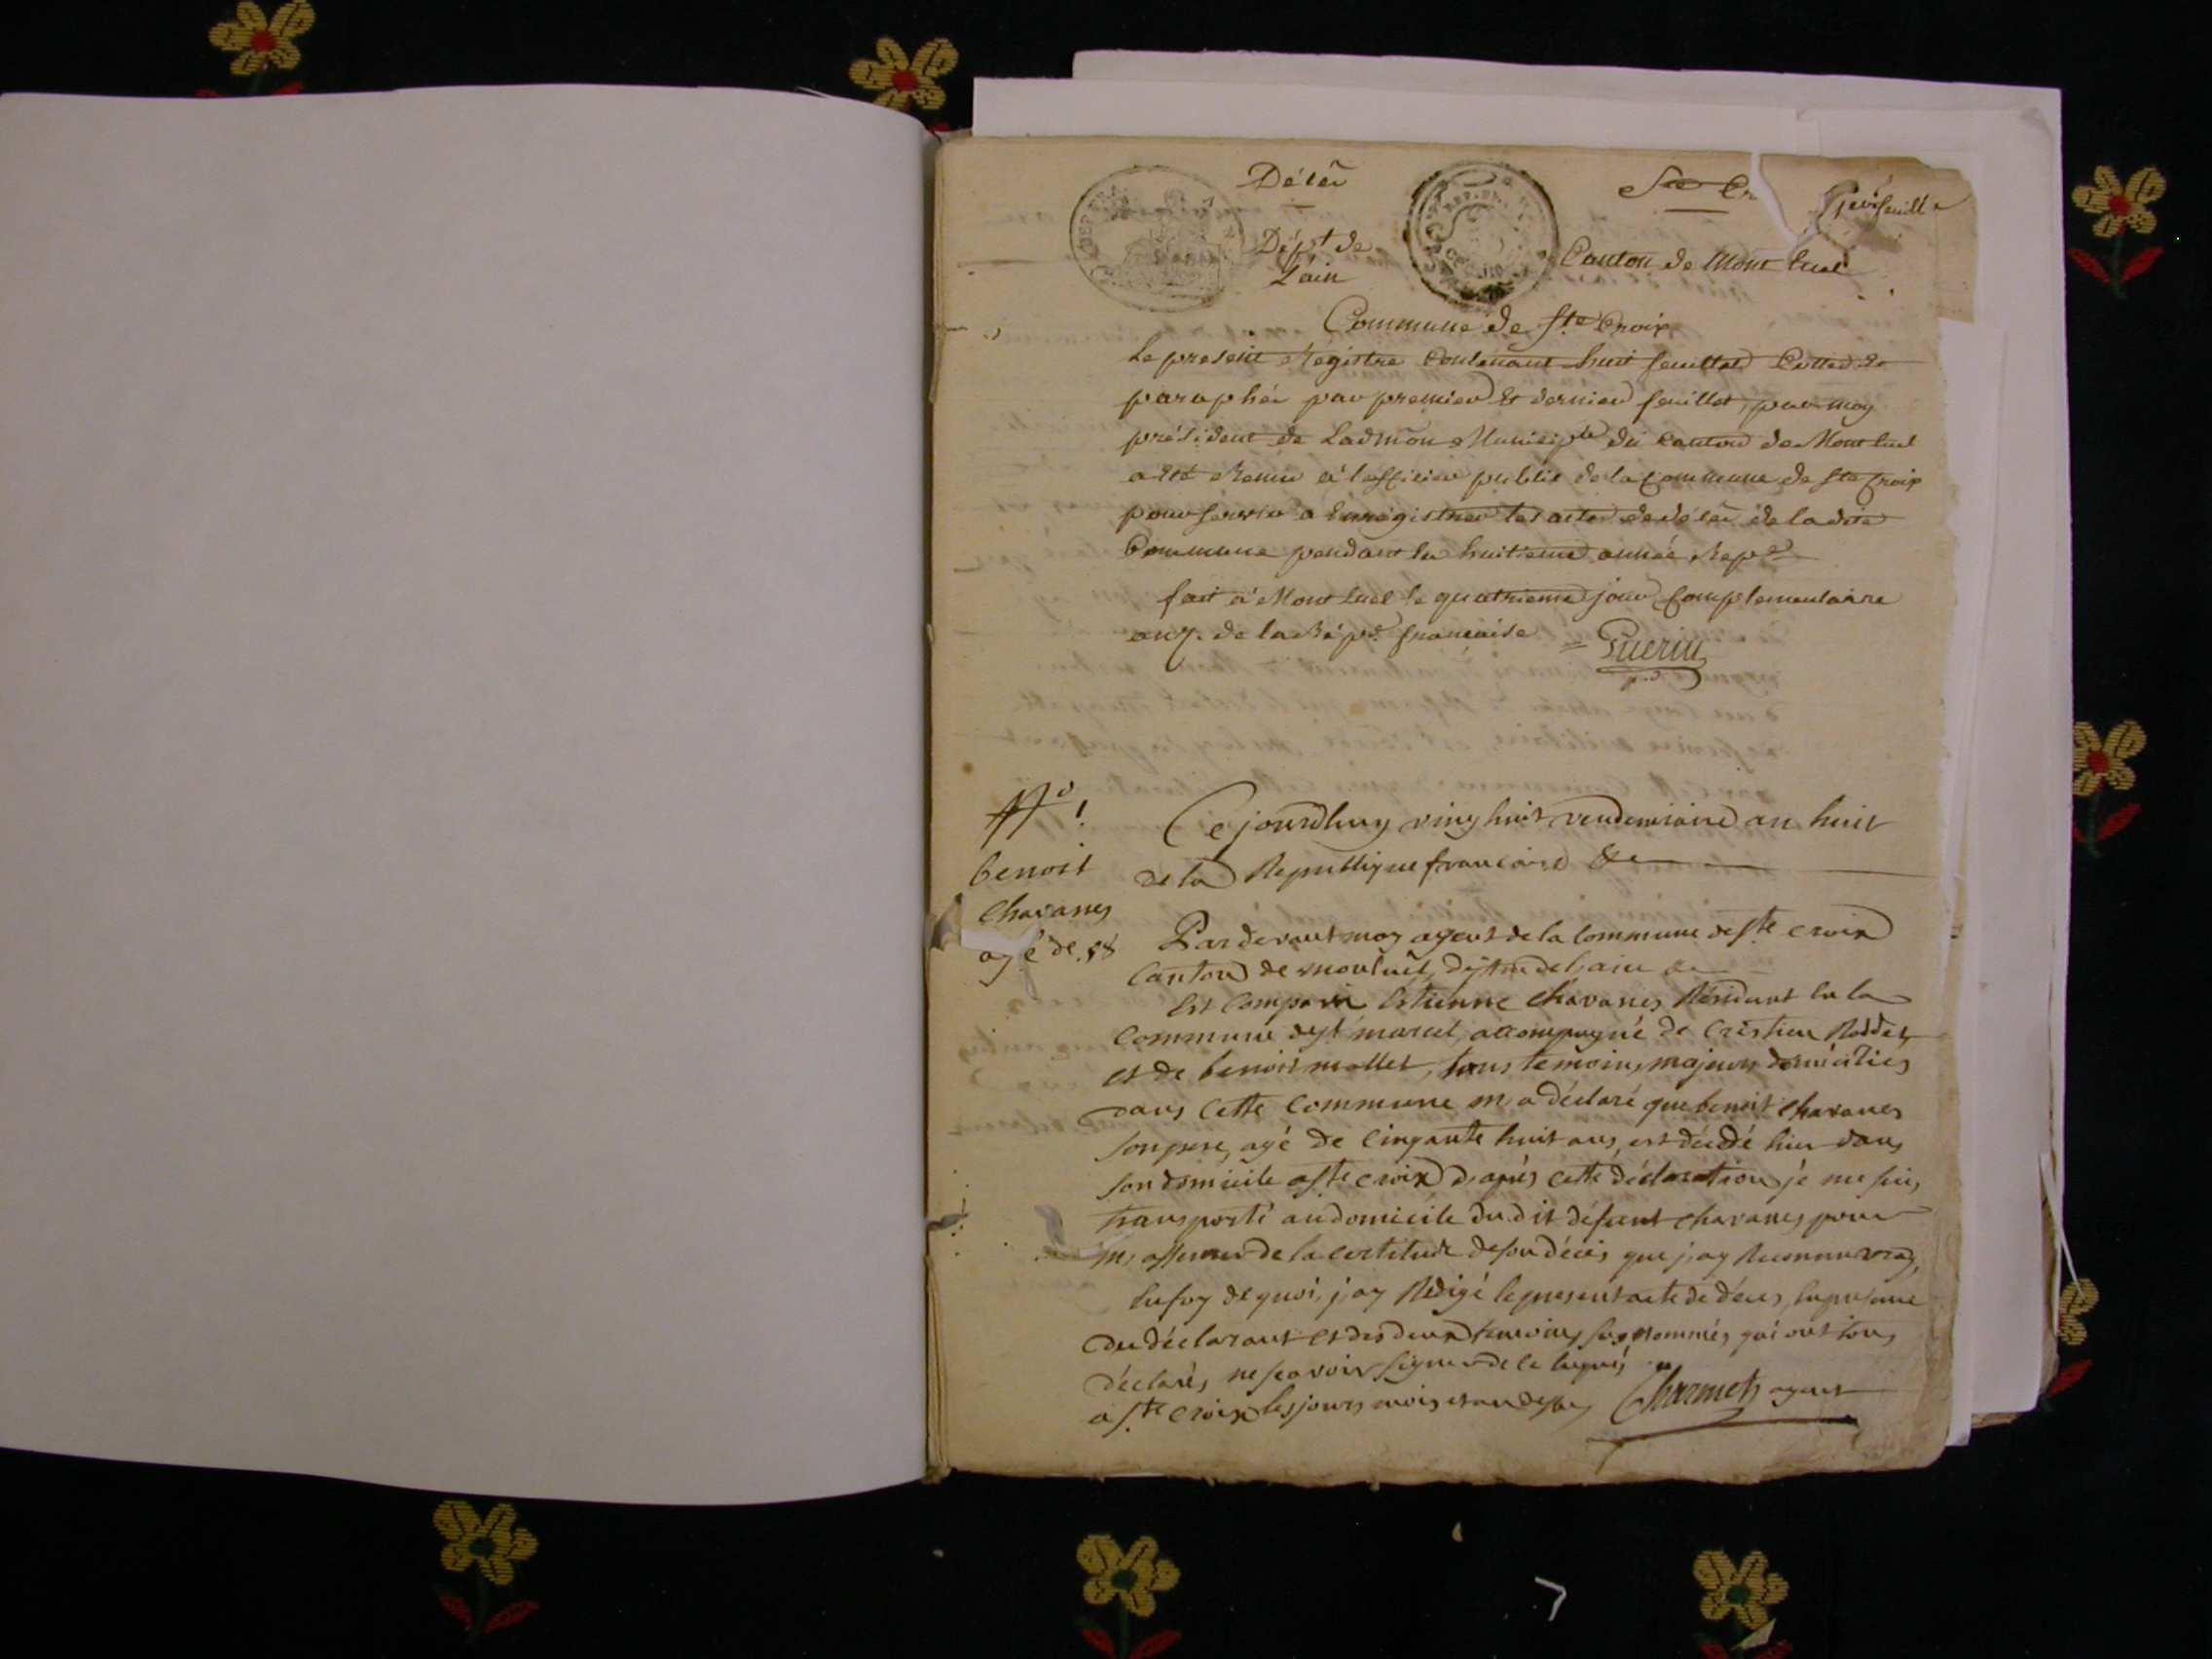 Décès
Ste Cr
1er feuillet
Dépt de
L'ain
Canton de Mont luel
Commune de Ste Croix
Le present Registre Contenant huit feuillets Cottés &
paraphés par premier Et dernier feuillet, par moy
président de Ladmõn Municiple du Canton de Mont luel
a Eté Remis à l'officier public de la Commune de Ste Croix
pour servir a Enregistrer les actes de décès de la dite
Commune pendant la huitieme année Repe
fait à Mont luel le quatrieme jour Complementaire
an 7e de la Répe française = Guerin
pd
No 1
benoit
Chavanes
agé de 58
Cejourdhuy ving huit vendemiaire an huit
de la Republique francaise &c
Pardevant moy agent de la Commune de Ste Croix
Canton de montluel, de l'ain
Est Comparu Estienne Chavanes Résidant en la
Commune de St marcel, accompagné de Cristien Roddet
et de benoit mollet, tous temoins majeurs domiciliés
dans Cette Commune m'a déclaré que benoit Chavanes
son pere, agé de Cinquante huit ans, est décédé hier dans
son domicile a Ste Croix d'aprés Cette déclaration je me suis
transporté au domicile du dit défunt Chavanes pour
m'assurer de la Certitude de son décés que j'ay Reconnu vray,
En foy de quoi, j'ay Rédigé le present acte de décés, En presence
du déclarant et des deux temoins susnommés, qui ont tous
déclarés ne scavoir signer de ce Enquis
a Ste Croix les jours mois et an dessus Charmetz agent